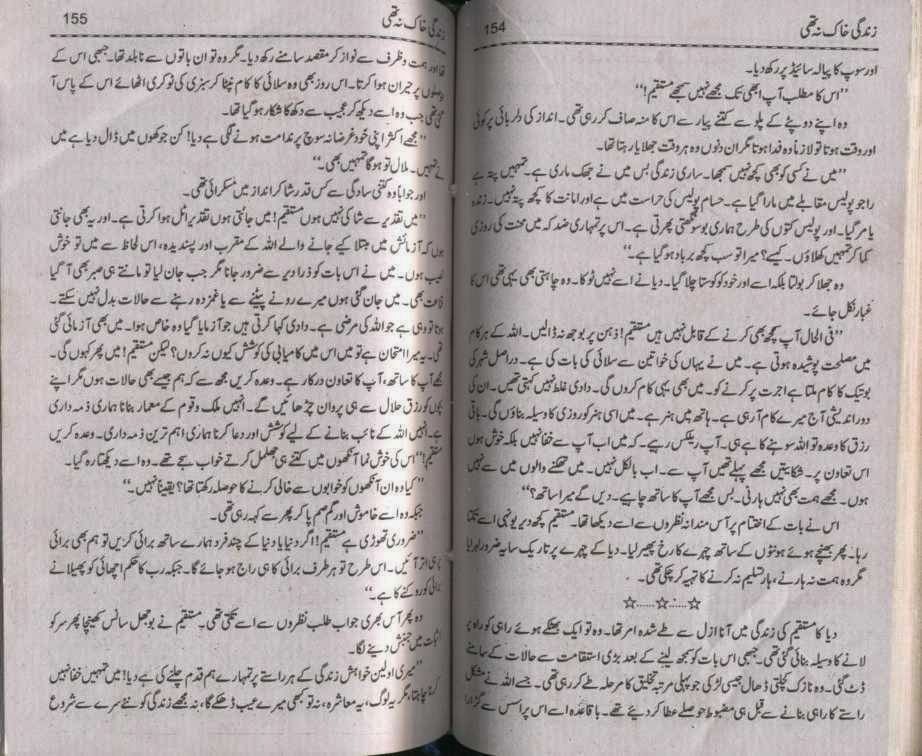 زندگی خاک نہ تھی 154
اور سوپ کا پیالہ سائیڈ پر رکھ دیا۔
”اس کا مطلب آپ ابھی تک مجھے نہیں سمجھے مستقیم!“
وہ اپنے دوپٹے کے پلو سے کتنے پیار سے اس کا منہ صاف کر رہی تھی۔ انداز کی دلربائی پر کوئی
اور وقت ہوتا تو لازماً وہ فدا ہوتا مگر ان دنوں وہ ہر وقت جھلایا رہتا تھا۔
”میں نے کسی کو بھی کچھ نہیں سمجھا۔ ساری زندگی بس میں نے جھک ماری ہے۔ تمہیں پتہ ہے
راجو پولیس مقابلے میں مارا گیا ہے۔ حسام پولیس کی حراست میں ہے اور امانت کا کچھ پتہ نہیں۔ زندہ
یا مر گیا۔ اور پولیس کتوں کی طرح ہماری بو سونگھتی پھرتی ہے۔ اس پر تمہاری ضد کہ میں محنت کی روزی
کما کر تمہیں کھلاؤں۔ کیسے؟ میرا تو سب کچھ برباد ہو گیا ہے۔“
وہ جھلا کر بولتا بلکہ اسے اور خود کو کوستا چلا گیا۔ دیا نے اسے نہیں ٹوکا۔ وہ چاہتی بھی یہی تھی اس کا
غبار نکل جائے۔
”فی الحال آپ کچھ بھی کرنے کے قابل نہیں ہیں مستقیم! ذہن پر بوجھ نہ ڈالیں۔ اللہ کے ہر کام
میں مصلحت پوشیدہ ہوتی ہے۔ میں نے یہاں کی خواتین سے سلائی کی بات کی ہے۔ دراصل شہر کی
بوتیک کا کام ملتا ہے اجرت پر کرنے کو۔ میں بھی یہی کام کروں گی۔ دادی غلط نہیں کہتی تھیں۔ ان کی
دور اندیشی آج میرے کام آ رہی ہے۔ ہاتھ میں ہنر ہے۔ میں اسی ہنر کو روزی کا وسیلہ بناؤں گی۔ باقی
رزق کا وعدہ تو اللہ سوہنے کا ہے ہی۔ آپ ریلیکس رہے۔ کہ میں اب آپ سے خفا نہیں بلکہ خوش ہوں
اس تعاون پر۔ شکایتیں مجھے پہلے تھیں آپ سے۔ اب بالکل نہیں۔ میں تھکنے والوں میں سے نہیں
ہوں۔ مجھے ہمت بھی نہیں ہارنی۔ بس مجھے آپ کا ساتھ چاہیے۔ دیں گے میرا ساتھ؟“
اس نے بات کے اختتام پر آس مندانہ نظروں سے اسے دیکھا تھا۔ مستقیم کچھ دیر یونہی اسے تکتا
رہا۔ پھر بھنچے ہوئے ہونٹوں کے ساتھ چہرے کا رخ پھیر لیا۔ دیا کے چہرے پر تاریک سایہ ضرور لہرایا
مگر وہ ہمت نہ ہارنے، ہار تسلیم نہ کرنے کا تہیہ کر چکی تھی۔
☆.....☆.....☆
دیا کا مستقیم کی زندگی میں آنا ازل سے طے شدہ امر تھا۔ وہ تو ایک بھٹکے ہوئے راہی کو راہ پر
لانے کا وسیلہ بنائی گئی تھی۔ جبھی اس بات کو سمجھ لینے کے بعد بڑی استقامت سے حالات کے سامنے
ڈٹ گئی۔ وہ نازک کچکتی ڈھال جیسی لڑکی جو پہلی مرتبہ تخلیق کا مرحلہ طے کر رہی تھی۔ جسے اللہ نے مشکل
راستے کا راہی بنانے سے قبل ہی مضبوط حوصلے عطا کر دیئے تھے۔ باقاعدہ اسے اس پراسس سے گزارا
زندگی خاک نہ تھی 155
تھا اور ہمت و ظرف سے نواز کر مقصد سامنے رکھ دیا۔ مگر وہ تو ان باتوں سے نابلد تھا۔ جبھی اس کے
حوصلوں پر حیران ہوا کرتا۔ اس روز بھی وہ سلائی کا کام نپٹا کر سبزی کی ٹوکری اٹھائے اس کے پاس آ
گئی تھی جب وہ اسے دیکھ کر عجیب سے دکھ کا شکار ہو گیا تھا۔
”مجھے اکثر اپنی خود غرضانہ سوچ پر ندامت ہونے لگی ہے دیا! کن جوکھوں میں ڈال دیا ہے میں
نے تمہیں۔ ملال تو ہو گا تمہیں بھی۔“
اور جواباً وہ کتنی سادگی سے کس قدر شاکر انداز میں مسکرائی تھی۔
”میں تقدیر سے شاکی نہیں ہوں مستقیم! میں جانتی ہوں تقدیر اٹل ہوا کرتی ہے۔ اور یہ بھی جانتی
ہوں کہ آزمائش میں مبتلا کیے جانے والے اللہ کے مقرب اور پسندیدہ، اس لحاظ سے میں تو خوش
نصیب ہوں۔ میں نے اس بات کو ذرا دیر سے ضرور جانا مگر جب جان لیا تو مانتے ہی صبر بھی آ گیا
قناعت بھی۔ میں جان گئی ہوں میرے رونے پیٹنے سے یا غمزدہ رہنے سے حالات بدل نہیں سکتے۔
ہوتا تو وہی ہے جو اللہ کی مرضی ہے۔ دادی کہا کرتی ہیں جو آزمایا گیا وہ خاص ہوا۔ میں بھی آزمائی گئی
تھی۔ یہ میرا امتحان ہے تو میں اس میں کامیابی کی کوشش کیوں نہ کروں؟ لیکن مستقیم! میں پھر کہوں گی۔
مجھے آپ کا ساتھ، آپ کا تعاون درکار ہے۔ وعدہ کریں مجھ سے کہ ہم جیسے بھی حالات ہوں مگر اپنے
بچوں کو رزق حلال سے ہی پروان چڑھائیں گے۔ انہیں ملک و قوم کے معمار بنانا ہماری ذمہ داری
ہے۔ انہیں اللہ کے نائب بنانے کے لیے کوشش اور دعا کرنا ہماری اہم ترین ذمہ داری۔ وعدہ کریں
مستقیم!“ اس کی خوش نما آنکھوں میں کتنے ہی جھلمل کرتے خواب سجے تھے۔ وہ اسے دیکھتا رہ گیا۔
”کیا وہ ان آنکھوں کو خوابوں سے خالی کرنے کا حوصلہ رکھتا تھا؟ یقیناً نہیں۔“
جبکہ وہ اسے خاموش اور گم صم پا کر پھر سے کہہ رہی تھی۔
”ضروری تھوڑی ہے مستقیم! اگر دنیا یا دنیا کے چند فرد ہمارے ساتھ برائی کریں تو ہم بھی برائی
پر ہی اتر آئیں۔ اس طرح تو ہر طرف برائی کا ہی راج ہو جائے گا۔ جبکہ رب کا حکم اچھائی کو پھیلانے
برائی کو روکنے کا ہے۔“
وہ پھر آس بھری جواب طلب نظروں سے اسے تکتی تھی۔ مستقیم نے بوجھل سانس کھینچا پھر سر کو
اثبات میں جنبش دینے لگا۔
”میری اولین خواہش زندگی کے ہر راستے پر تمہارے ہم قدم چلنے کی ہے دیا! میں تمہیں خفا نہیں
کرنا چاہتا، مگر یہ لوگ، یہ معاشرہ، نہ تو کبھی میرے عیب ڈھکے گا، نہ مجھے زندگی کو نئے سرے سے شروع